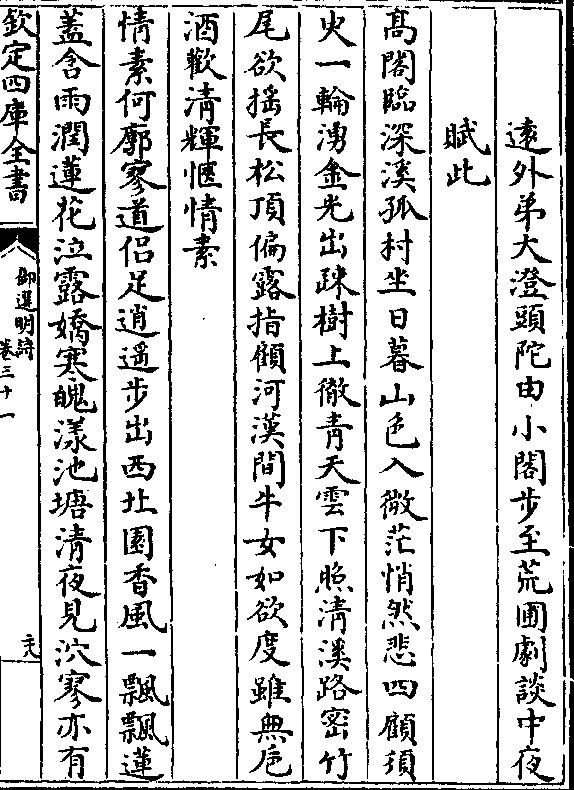 遠外弟大澄頭陀由小閣步至荒圃劇談中夜
賦此
髙閣臨深溪孤村坐日暮山色入微茫悄然悲四顧須
㬰一輪湧金光出踈樹上徹青天雲下照清溪路密竹
尾欲揺長松頂偏露指顧河漢間牛女如欲度雖無巵
酒歡清輝愜情素
情素何廓寥道侣足逍遥步出西北園香風一飄飄蓮
葢含雨潤蓮花泣露嬌寒魄漾池塘清夜見泬寥亦有
欽定四庫全書
御選明詩
卷三十一